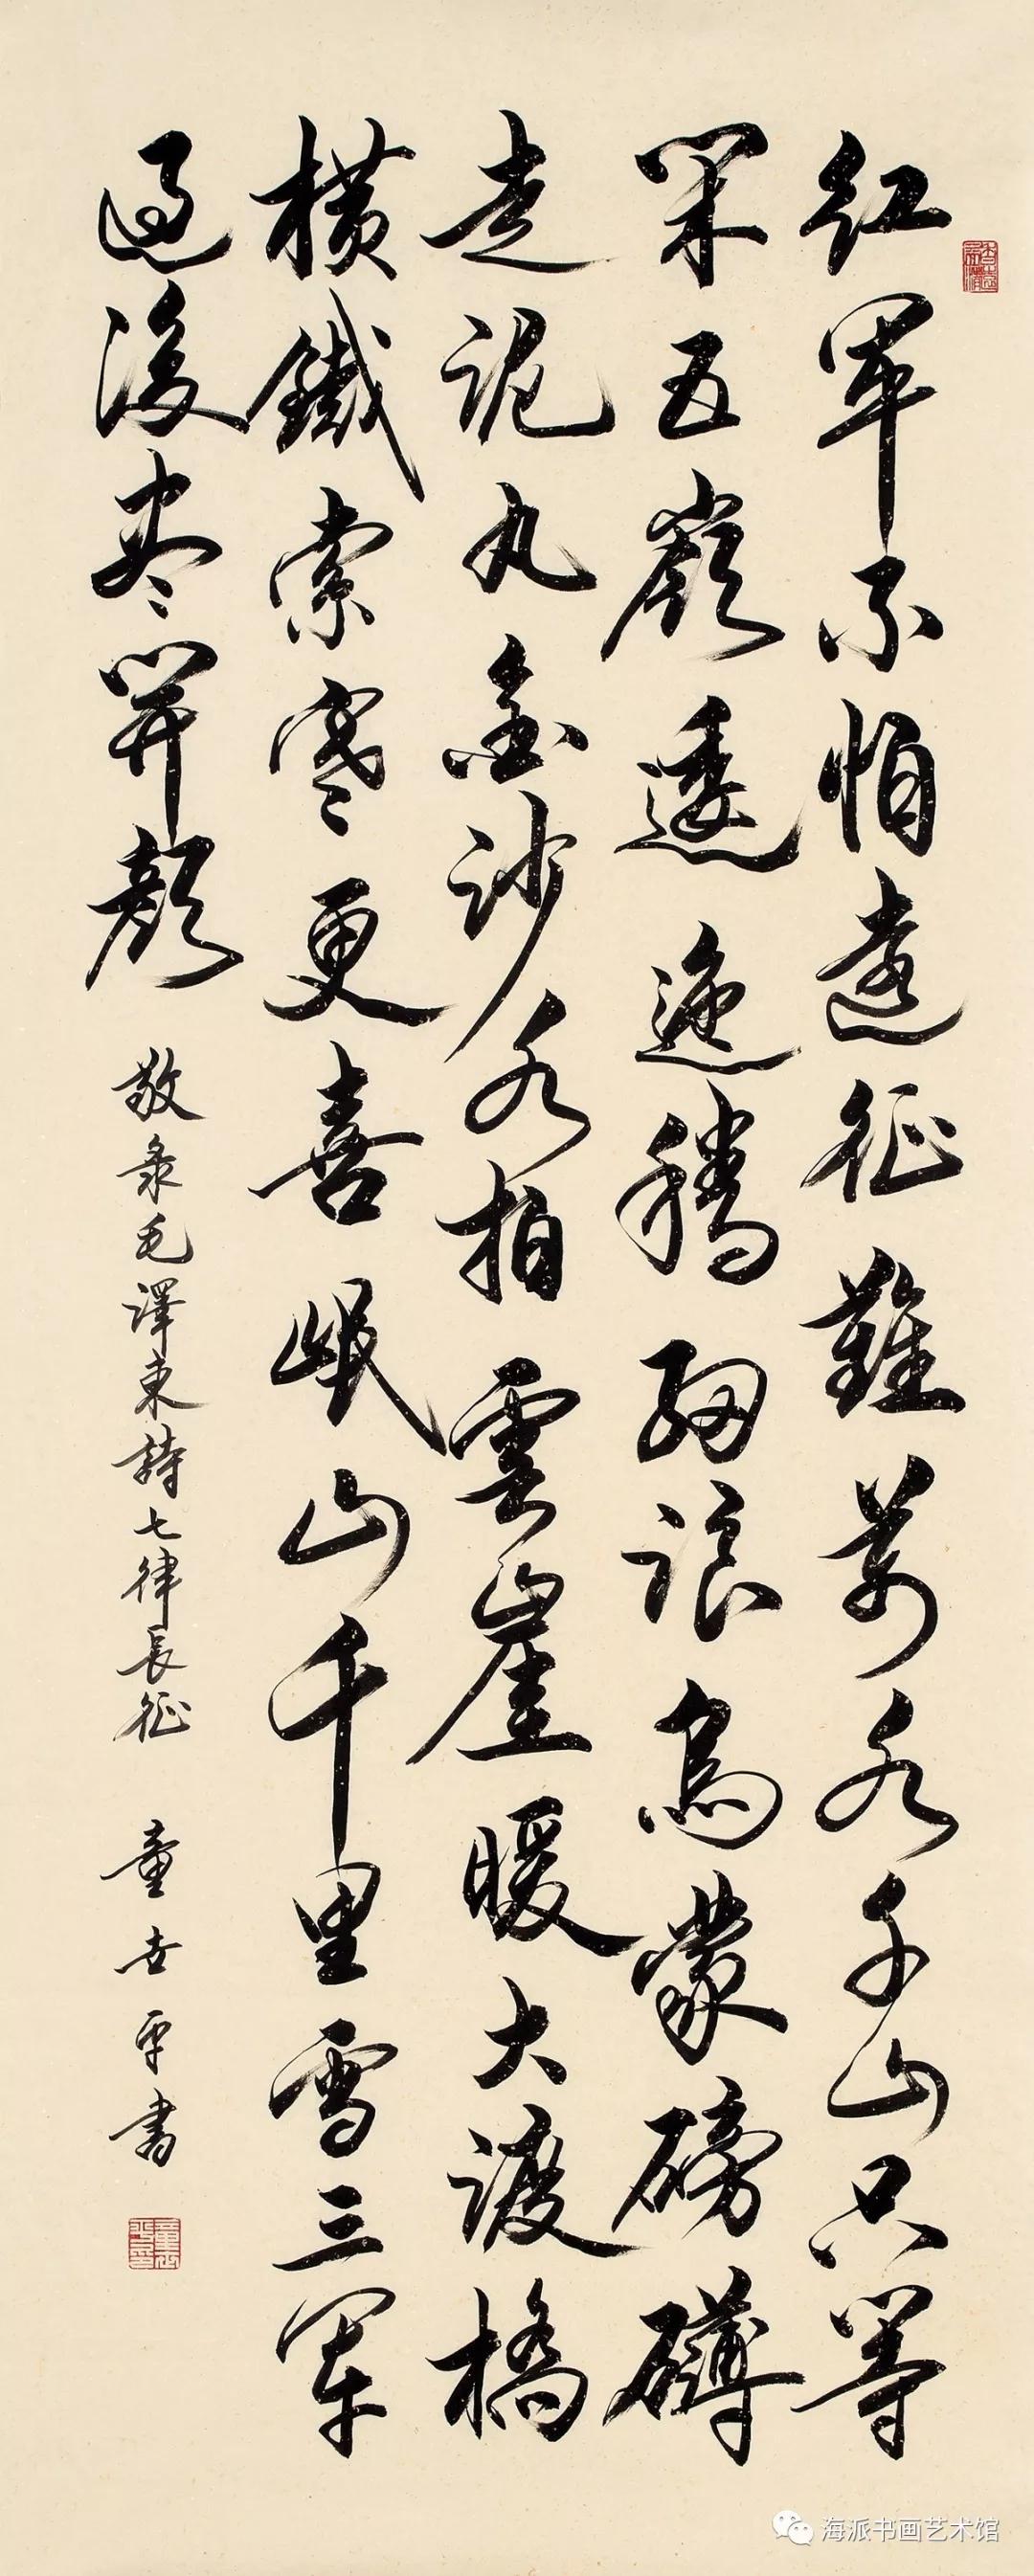 紅軍不怕遠征難萬水千山只等
閑五嶺逶迤騰細浪烏蒙磅礴
走泥丸金沙水拍雲崖暖大渡橋
橫鐵索寒更喜岷山千里雪三軍
過後盡開顏 敬录毛澤東詩七律長征 童世平書
海派书画艺术馆